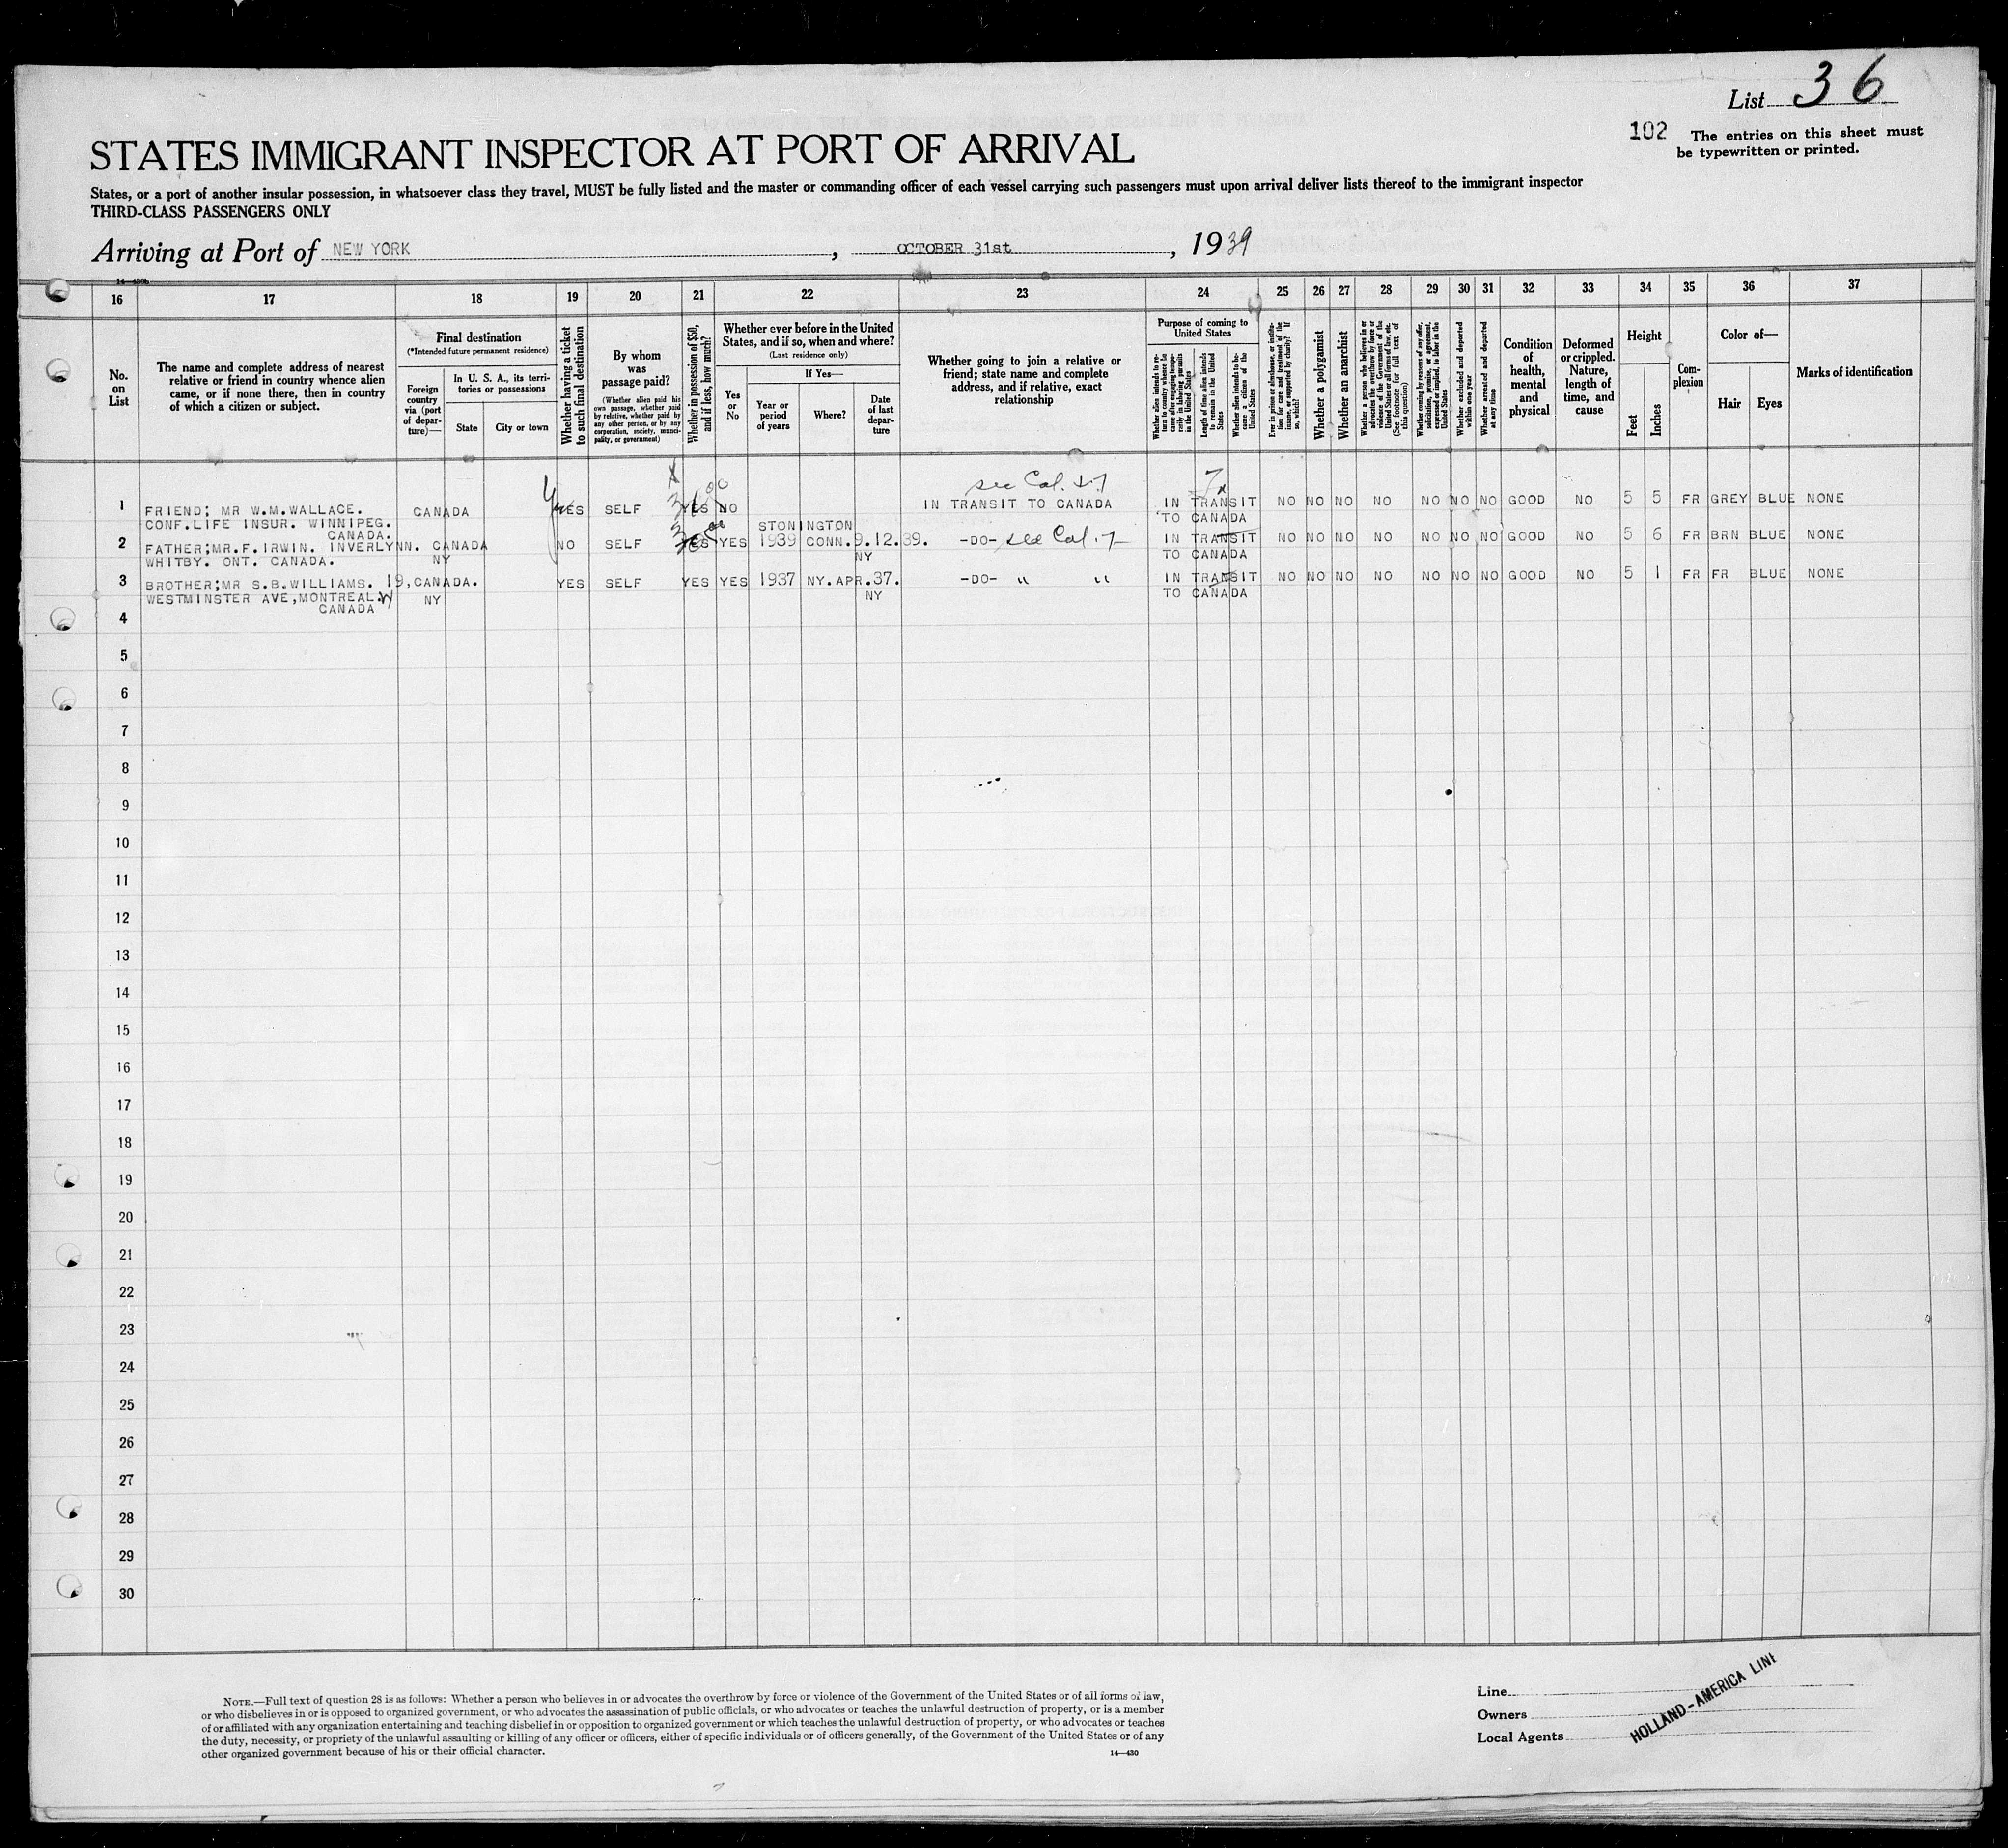 List 36
102 The entries on this sheet must
be typewritten or printed.
STATES IMMIGRANT INSPECTOR AT PORT OF ARRIVAL
States, or a port of another insular possession, in whatsoever class they travel, MUST be fully listed and the master or commanding officer of each vessel carrying such passengers must upon arrival deliver lists thereof to the immigrant inspector
THIRD-CLASS PASSENGERS ONLY
Arriving at Port of NEW YORK, OCTOBER 31st, 1939
14—430b
16 17 18 19 20 21 22 23 24 25 26 27 28 29 30 31 32 33 34 35 36 37
No.
on
List
The name and complete address of nearest
relative or friend in country whence alien
came, or if none there, then in country
of which a citizen or subject.
Final destination
(*Intended future permanent residence)
Foreign
country
via (port
of depar-
ture)—
In U. S. A., its terri-
tories or possessions
State
City or town
Whether having a ticket
to such final destination
By whom
was
passage paid?
(Whether alien paid his
own passage, whether paid
by relative, whether paid by
any other person, or by any
corporation, society, munici-
pality, or government)
Whether in possession of $50,
and if less, how much?
Whether ever before in the United
States, and if so, when and where?
(Last residence only)
Yes
or
No
If Yes—
Year or
period
of years
Where?
Date
of last
depar-
ture
Whether going to join a relative or
friend; state name and complete
address, and if relative, exact
relationship
Purpose of coming to
United States
Whether alien intends to re-
turn to country whence he
came after engaging tempo-
rarily in laboring pursuits
in the United States
Length of time alien intends
to remain in the United
States
Whether alien intends to be-
come a citizen of the
United States
Ever in prison or almshouse, or institu-
tion for care and treatment of the
insane, or supported by charity? If
so, which?
Whether a polygamist
Whether an anarchist
Whether a person who believes in or
advocates the overthrow by force or
violence of the Government of the
United States or all forms of law, etc.
(See footnote for full text of
this question)
Whether coming by reasons of any offer,
solicitation, promise, or agreement,
expressed or implied, to labor in the
United States
Whether excluded and deported
within one year
Whether arrested and deported
at any time
Condition
of
health,
mental
and
physical
Deformed
or crippled.
Nature,
length of
time, and
cause
Height
Feet
Inches
Com-
plexion
Color of—
Hair
Eyes
Marks of identification
see Col.
1 FRIEND; MR W.M.WALLACE. CANADA YES SELF YES NO IN TRANSIT TO CANADA IN TRANSIT NO NO NO NO NO NO NO GOOD NO 5 5 FR GREY BLUE NONE
CONF.LIFE INSUR. WINNIPEG. STONINGTON TO CANADA
CANADA.
2 FATHER;MR.F.IRWIN. INVERLYNN. CANADA NO SELF YES YES 1939 CONN.9.12.39. -DO- see Col. IN TRANSIT NO NO NO NO NO NO NO GOOD NO 5 6 FR BRN BLUE NONE
WHITBY. ONT. CANADA. NY NY TO CANADA
3 BROTHER;MR S.B.WILLIAMS. 19,CANADA. YES SELF YES YES 1937 NY.APR.37. -DO- " " IN TRANSIT NO NO NO NO NO NO NO GOOD NO 5 1 FR FR BLUE NONE
WESTMINSTER AVE,MONTREAL. NY NY TO CANADA
CANADA
4
5
6
7
8
9
10
11
12
13
14
15
16
17
18
19
20
21
22
23
24
25
26
27
28
29
30
NOTE.—Full text of question 28 is as follows: Whether a person who believes in or advocates the overthrow by force or violence of the Government of the United States or of all forms of law,
or who disbelieves in or is opposed to organized government, or who advocates the assassination of public officials, or who advocates or teaches the unlawful destruction of property, or is a member
of or affiliated with any organization entertaining and teaching disbelief in or opposition to organized government or which teaches the unlawful destruction of property, or who advocates or teaches
the duty, necessity, or propriety of the unlawful assaulting or killing of any officer or officers, either of specific individuals or of officers generally, of the Government of the United States or of any
other organized government because of his or their official character.
14—430
Line
Owners
Local Agents
HOLLAND-AMERICA LINE